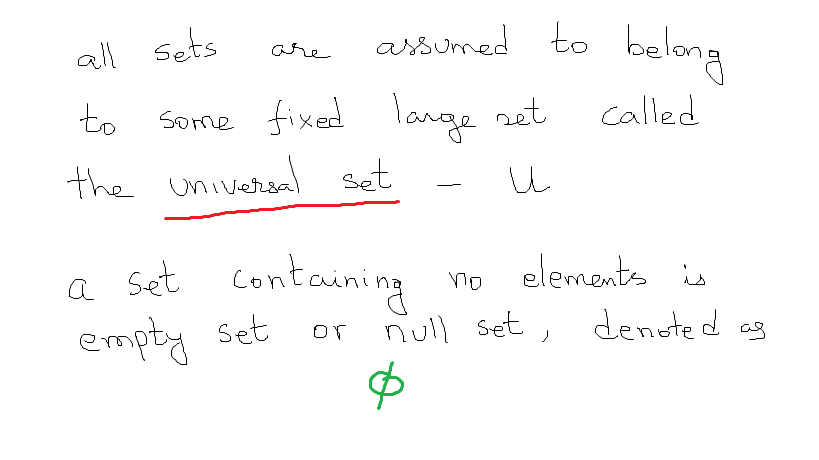 all sets are assumed to belong
to some fixed large set called
the universal set - U
a set containing no elements is
empty set or null set, denoted as
ϕ